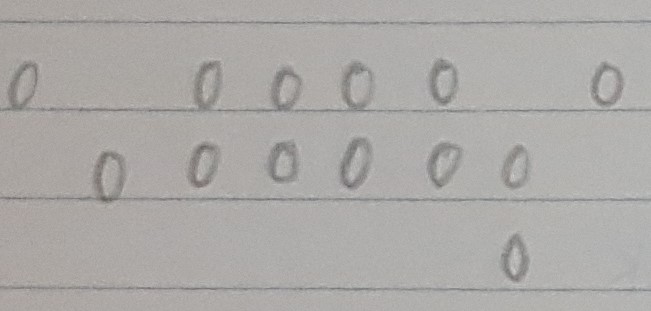 0 0 0 0 0 0
0 0 0 0 0 0
0